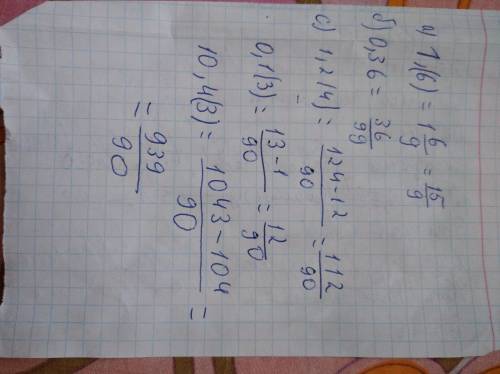 а) 1,(6) = 1 6/9 = 15/9
б) 0,36 = 36/99
с) 1,2(4) = 124-12/90 = 112/90
0,1(3) = 13-1/90 = 12/90
10,4(3) = 1043-104/90 =
= 939/90